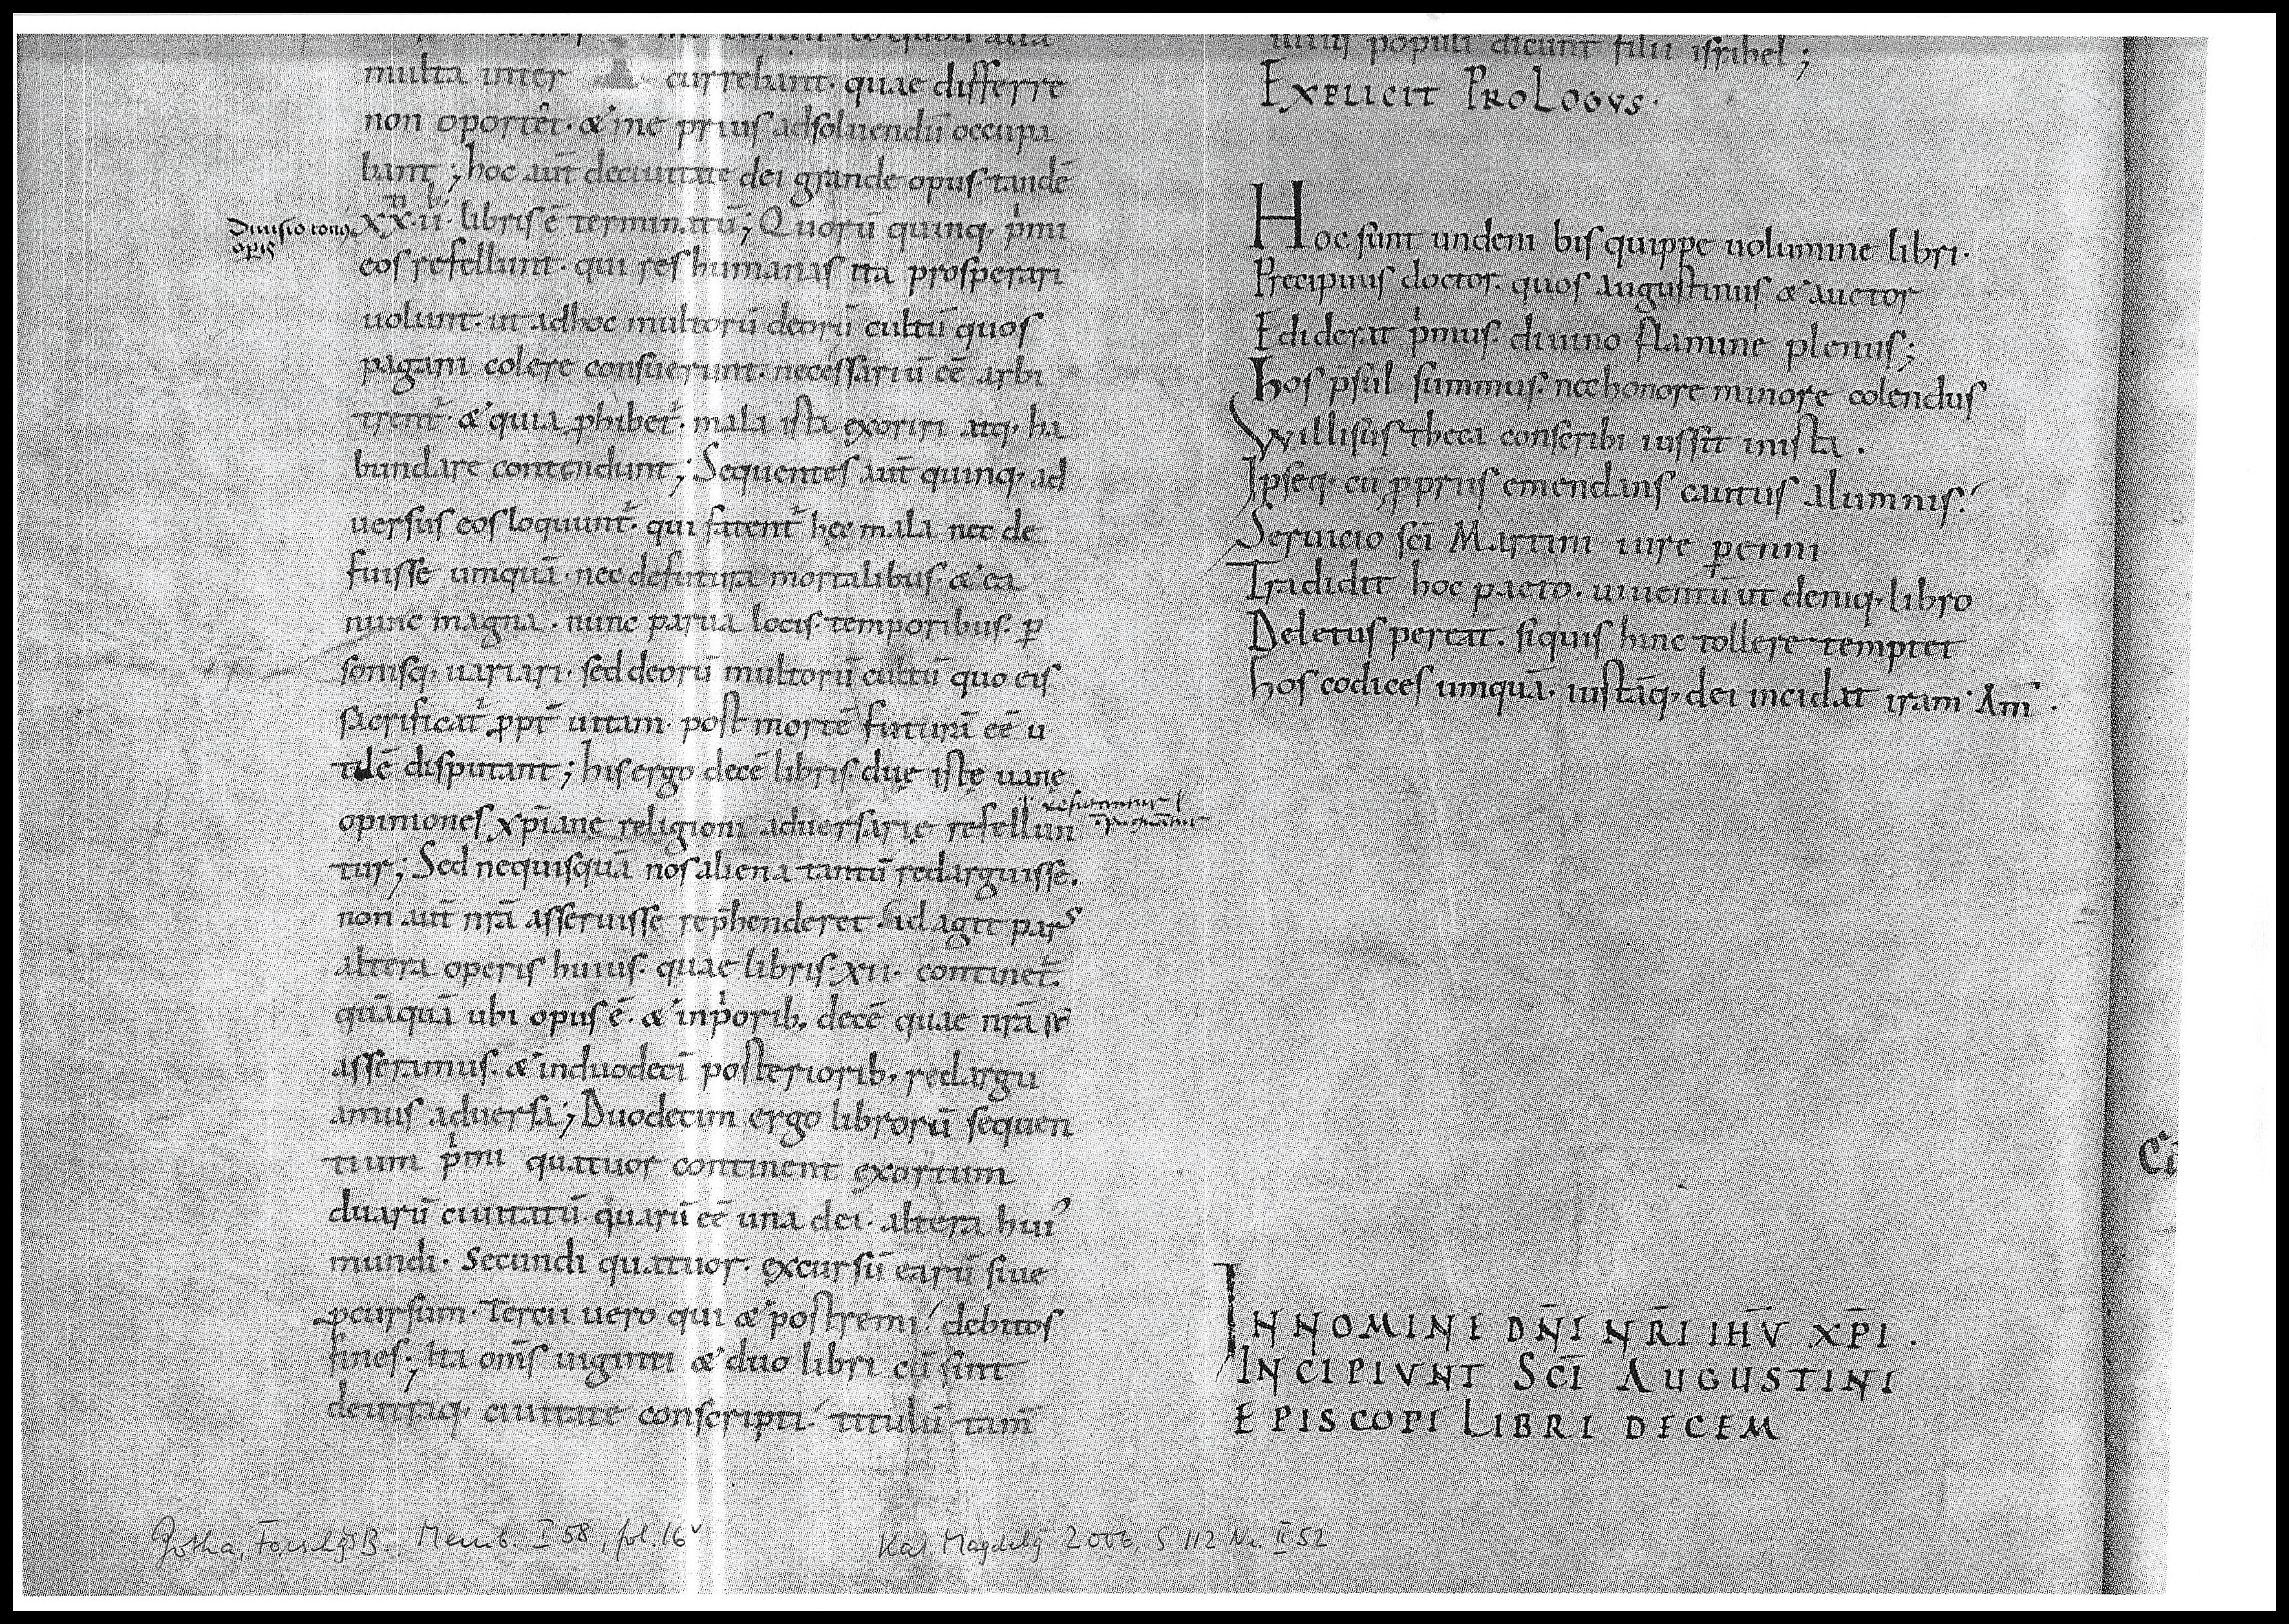 multa inter currebant· quae differre
non oporteret· & me prius adsoluendū occupa
bant; hoc aūt deciuitate dei grande opus· tandē
xx·ii· libris ē terminatū; Quorū quinq· p̄mi
Diuisio toti9 operis
eos refellunt· qui res humanas ita prosperari
uolunt· ut adhoc multorū deorū cultū quos
pagani colere consuerunt· necessariū eē arbi
trent᷑· & quia phibet᷑· mala ista exoriri atq· ha
bundare contendunt; Sequentes aūt quinq· ad
uersus eos loquunt᷑· qui fatent᷑ hęc mala nec de
fuisse umquā· nec defutura mortalibus· & ea
nunc magna· nunc parua locis· temporibus· ꝑ
sonisq· uariari· sed deorū multorū cultū quo eis
sacrificat᷑ ꝓpt̄ uitam· post mortē futurā eē u
tilē disputant; his ergo decē libris· duę istę uanę
opiniones xp̄iane religioni aduersarię refellun
refutantur
tur; Sed nequisquā nos aliena tantū redarguisse.
non aūt nr̄ā asseruisse rep̄henderet· id agit pars
altera operis huius· quae libris· xii· continet᷑·
quāquā ubi opus ē· & inp̄orib; decē quae nr̄ā sт̄
asseramus· & induodecī posteriorib; redargu
amus aduersa; Duodecim ergo librorū sequen
tium p̄mi quattuor continent exortum
duarū ciuitatū· quarū eē una dei· altera hui9
mundi· Secundi quattuor· excursū earū siue
ꝓcursum· Tercii uero qui & postremi/ debitos
fines; Ita om̄s uiginti & duo libri cū sint
deutraq· ciuitate conscripti/ titulū tam̄
populi dicunt filii isrāhel;
EXPLICIT PROLOGVS·
Hoc sunt undeni bis quippe uolumine libri·
Precipuus doctor· quos augustinus & auctor
Ediderat p̄mus· diuino flamine plenus;
Hos p̄sul summus· nec honore minore colendus
Willisus theca conscribi iussit inista·
Ipseq· cū ꝓpriis emendans cautus alumnis/
Seruicio sc̄i Martini iure ꝑenni
Tradidit hoc pacto· uiuentū ut deniq· libro
Deletus pereat· siquis hinc tollere temptet
Hos codices umquā· iustāq· dei incidat iram· Am̄·
INNOMINE DN̄I NR̄I IHV̄ XP̄I·
INCIPIVNT SC̄I AUGUSTINI
EPISCOPI LIBRI DECEM
Gotha, ForschgsB., Memb. I 58, fol. 16v
Kat Magdebg 2006, S. 112 Nr. II 52